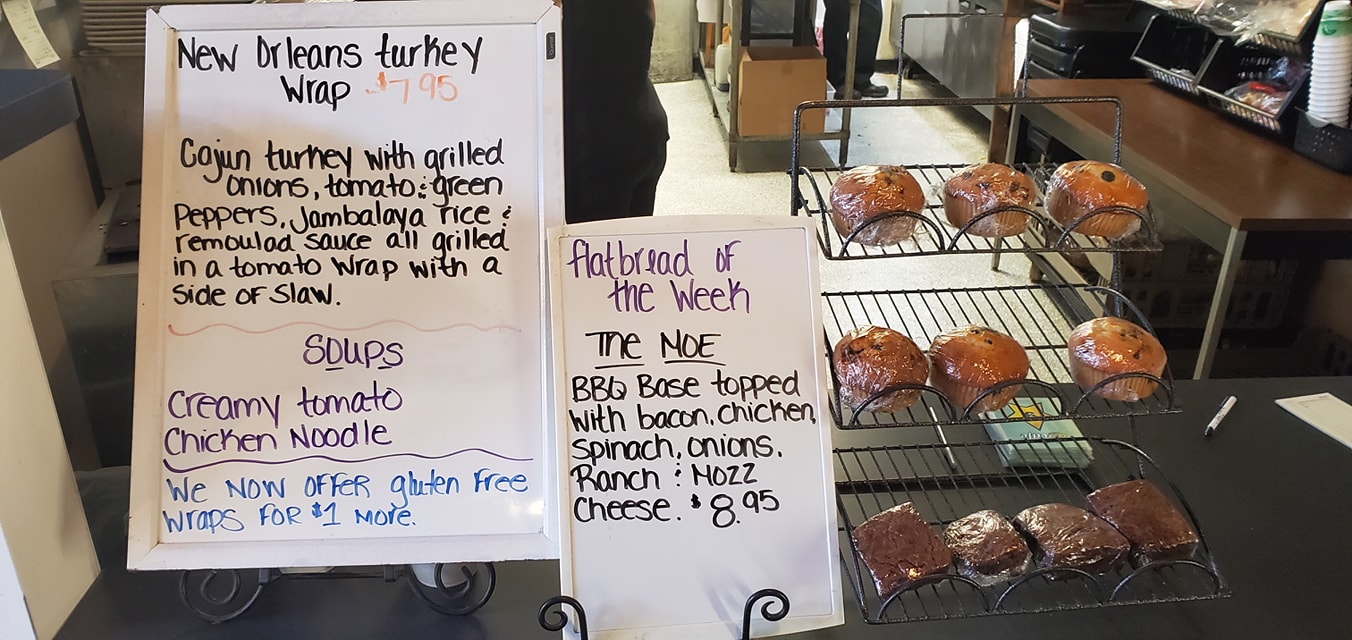 New Orleans turkey
Wrap $7.95
Cajun turkey with grilled
onions, tomato & green
Peppers, Jambalaya rice &
remoulad sauce all grilled
in a tomato wrap with a
side of slaw.
Soups
Creamy tomato
Chicken Noodle
We now offer gluten free
wraps for $1 more.
flatbread of
the Week
The MOE
BBQ Base topped
with bacon, chicken,
spinach, onions,
Ranch & Mozz
Cheese. $8.95